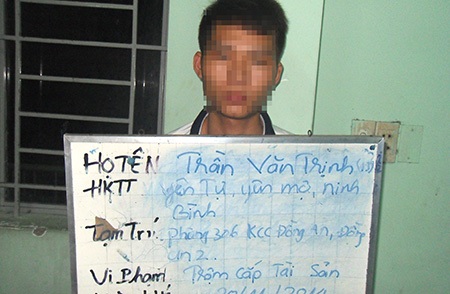 HỌ TÊN Trần Văn Trịnh
HKTT yên Tự, yên mộ, ninh
Bình
Tạm Trú. phòng 306 KCC Đồng An, Đồng
an 2..
Vi Phạm Trộm cấp Tài Sản